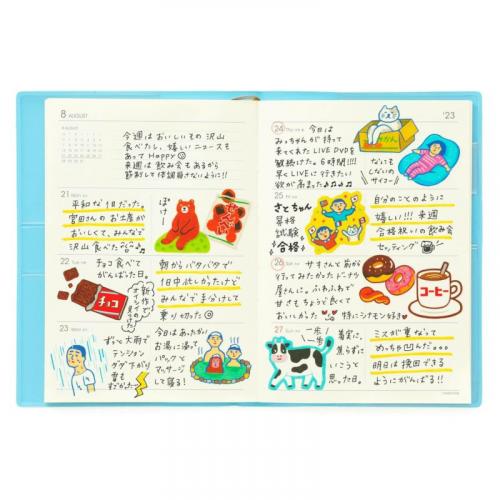 8 AUGUST
今週はおいしいもの沢山
食べたし、嬉しいニュースも
あってHappy
来週は飲み会もあるから
節約して体調崩さないように!!
21
平和な1日だった。
宮田さんのお土産が
おいしくて、みんなで
沢山食べた
ぽけー
22
チョコ食べて
がんばった日。
新作で
オイシイの
見つけた
チョコ
朝からバタバタで
1日中忙しかったけど
みんなで手分けして
乗り切った
23
ずっと大雨で
テンション
ダダ下がり
雷も
すごかった
今日はあったかい
お湯に浸って
パックと
マッサージ
して寝る!
'23
24
今日は
みっちゃんが持って
来てくれたLIVE DVDを
観続けた。6時間!!!
早くLIVEに行きたい
欲が高まった
みかん
なにも
しないの
サイコー
25
さとちゃん
昇格
試験
合格
自分のことのように
嬉しい!!! 来週
合格祝いの飲み会
セッティング
26
サオさんと前から
行ってみたかったドーナツ
屋さんに。ふわふわで
甘さもちょうど良くて
おいしかった 特にシナモン好き
コーヒー
27
一歩一歩
着実に、
焦らずに
いこうと
思った日。
ミスが重なって
めっちゃ凹んだ...
明日は挽回できる
ようにがんばる!!